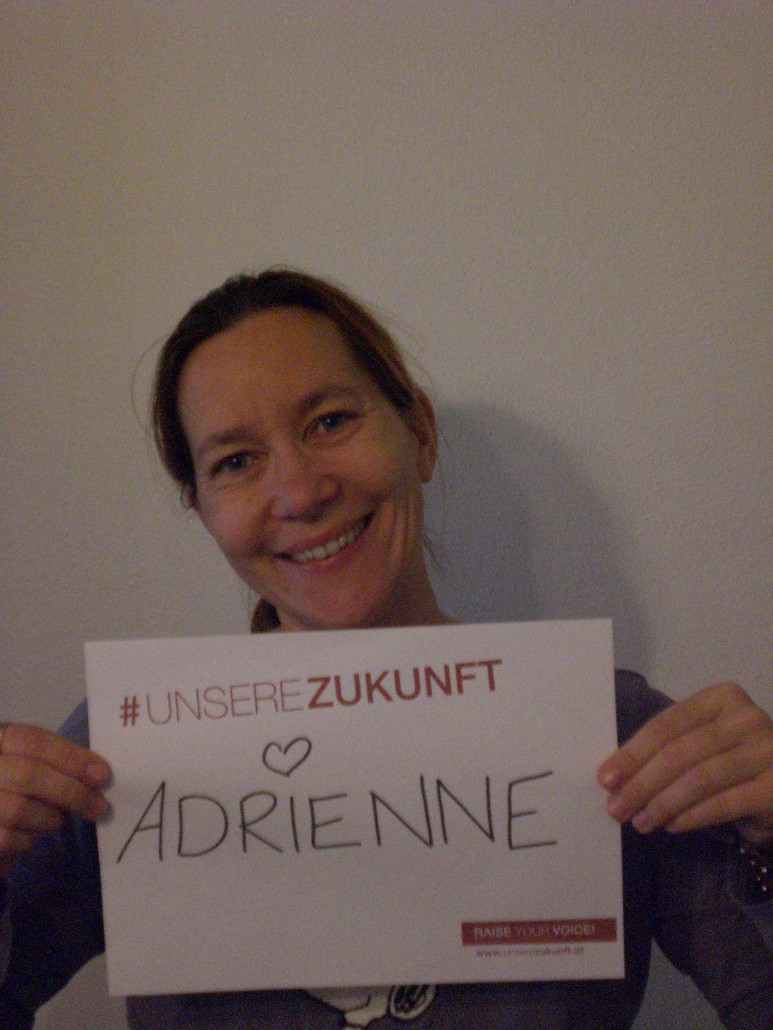 #UNSEREZUKUNFT
ADRIENNE
RAISE YOUR VOICE!
www.unserezukunft.at